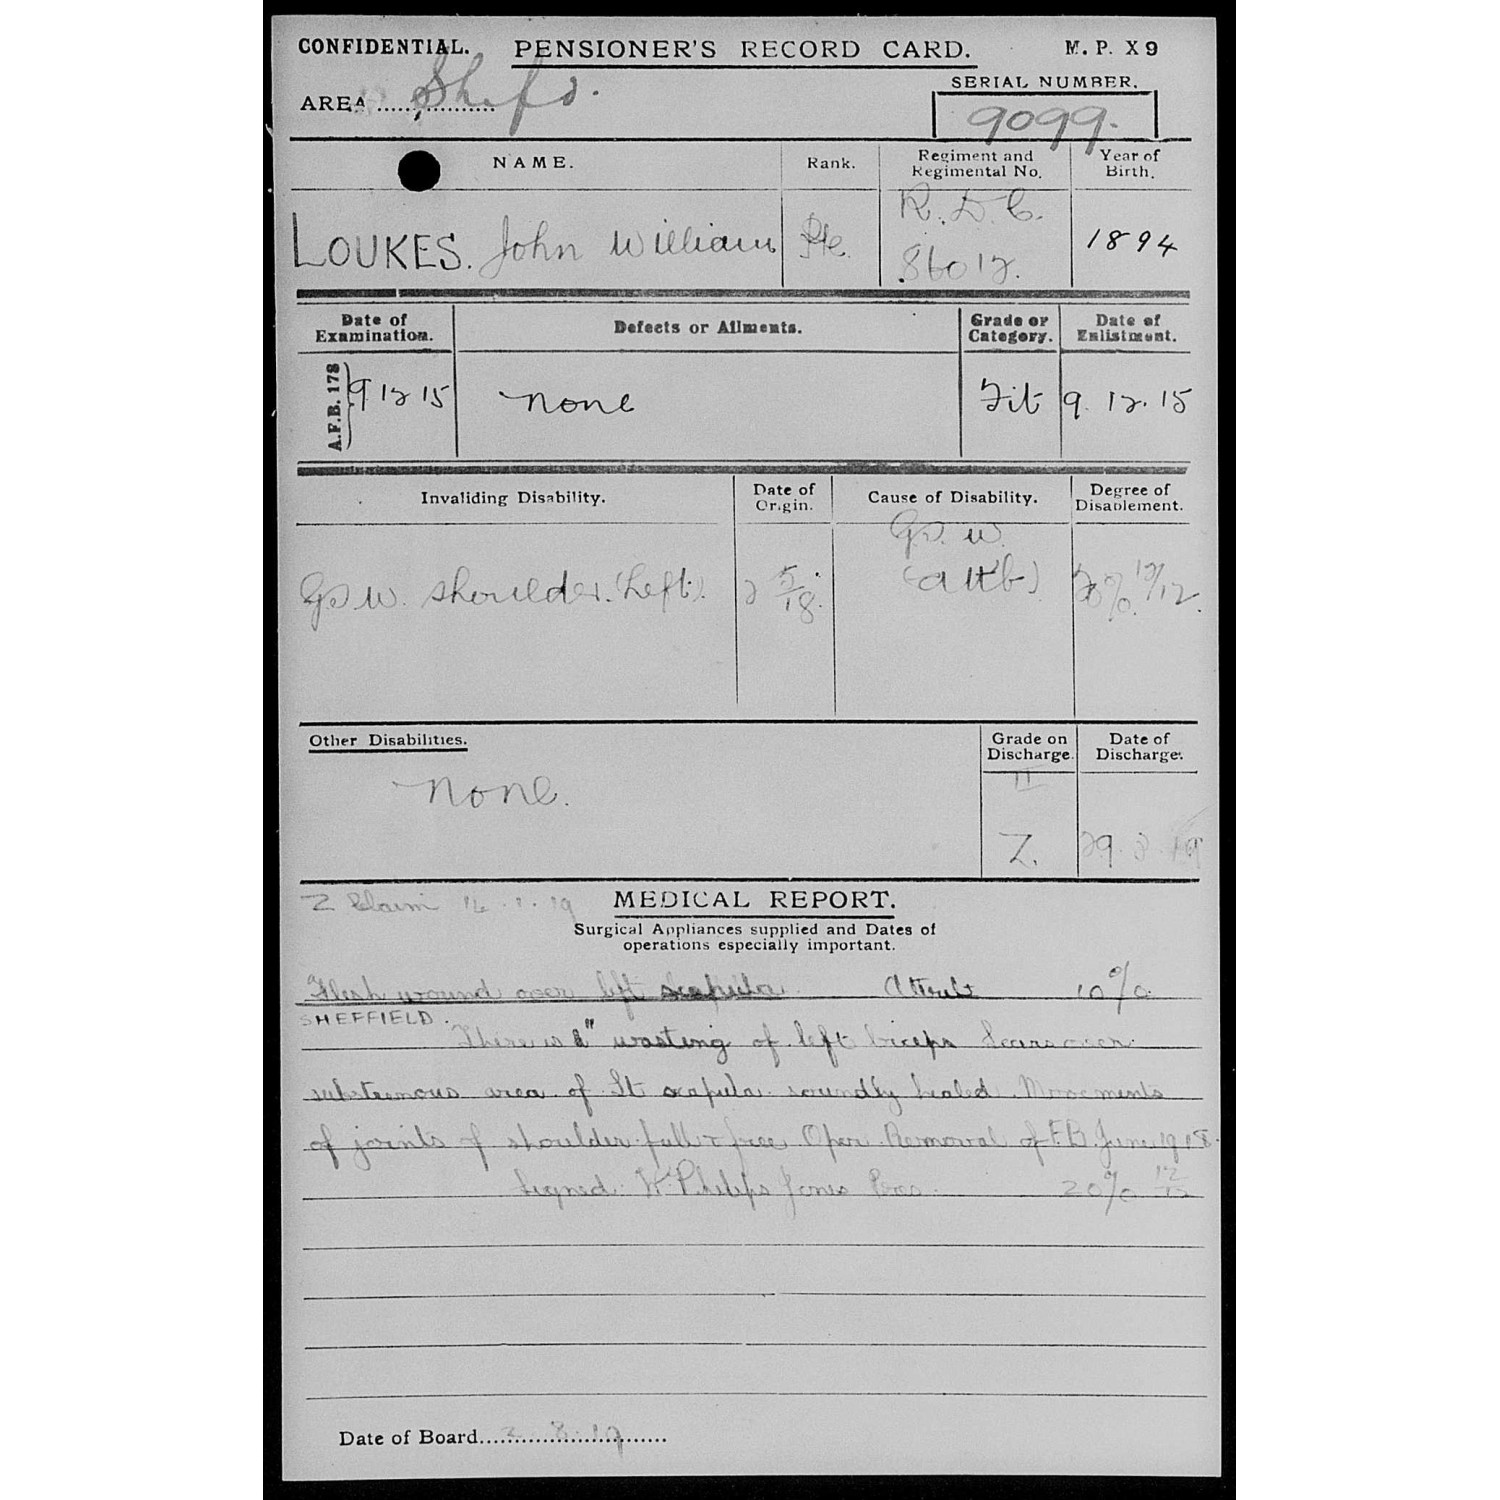 CONFIDENTIAL. PENSIONER'S RECORD CARD. M. P. X 9
AREA Shefd.
SERIAL NUMBER.
9099.
NAME. Rank. Regiment and Regimental No. Year of Birth.
LOUKES. John William Pte. R. D. C. 86012. 1894
Date of Examination. Defects or Ailments. Grade or Category. Date of Enlistment.
A.F.B. 178 9 12 15 none Fit 9. 12. 15
Invaliding Disability. Date of Origin. Cause of Disability. Degree of Disablement.
GSW. shoulder. (Left). 2 5/18. GS. W. (attb) 20% 12/12.
Other Disabilities. Grade on Discharge. Date of Discharge.
none. II
Z. 29. 3. 19
Z Claim 14. 1. 19 MEDICAL REPORT.
Surgical Appliances supplied and Dates of
operations especially important.
Flesh wound over left scapula. Attrib 10%
SHEFFIELD.
There is 1" wasting of left biceps Scars over
area of lt scapula soundly healed. Movements
of joints of shoulder full & free. Oper. Removal of F.B. June 1918.
Signed. W. Philips Jones Pres. 20% 12/12
Date of Board 2. 8. 19